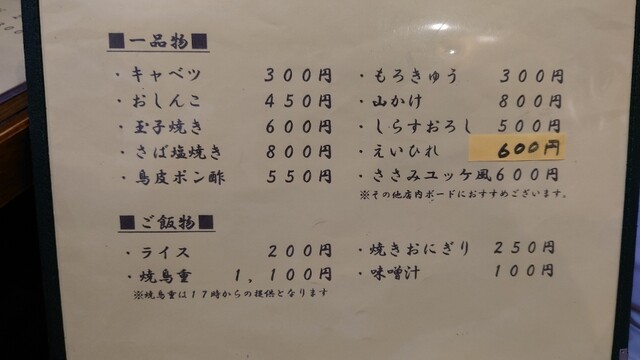 ■一品物■
・キャベツ 300円
・おしんこ 450円
・玉子焼き 600円
・さば塩焼き 800円
・鳥皮ポン酢 550円
・もろきゅう 300円
・山かけ 800円
・しらすおろし 500円
・えいひれ 600円
・ささみユッケ風 600円
※その他店内ボードにおすすめございます。
■ご飯物■
・ライス 200円
・焼鳥重 1,100円
※焼鳥重は17時からの提供となります
・焼きおにぎり 250円
・味噌汁 100円